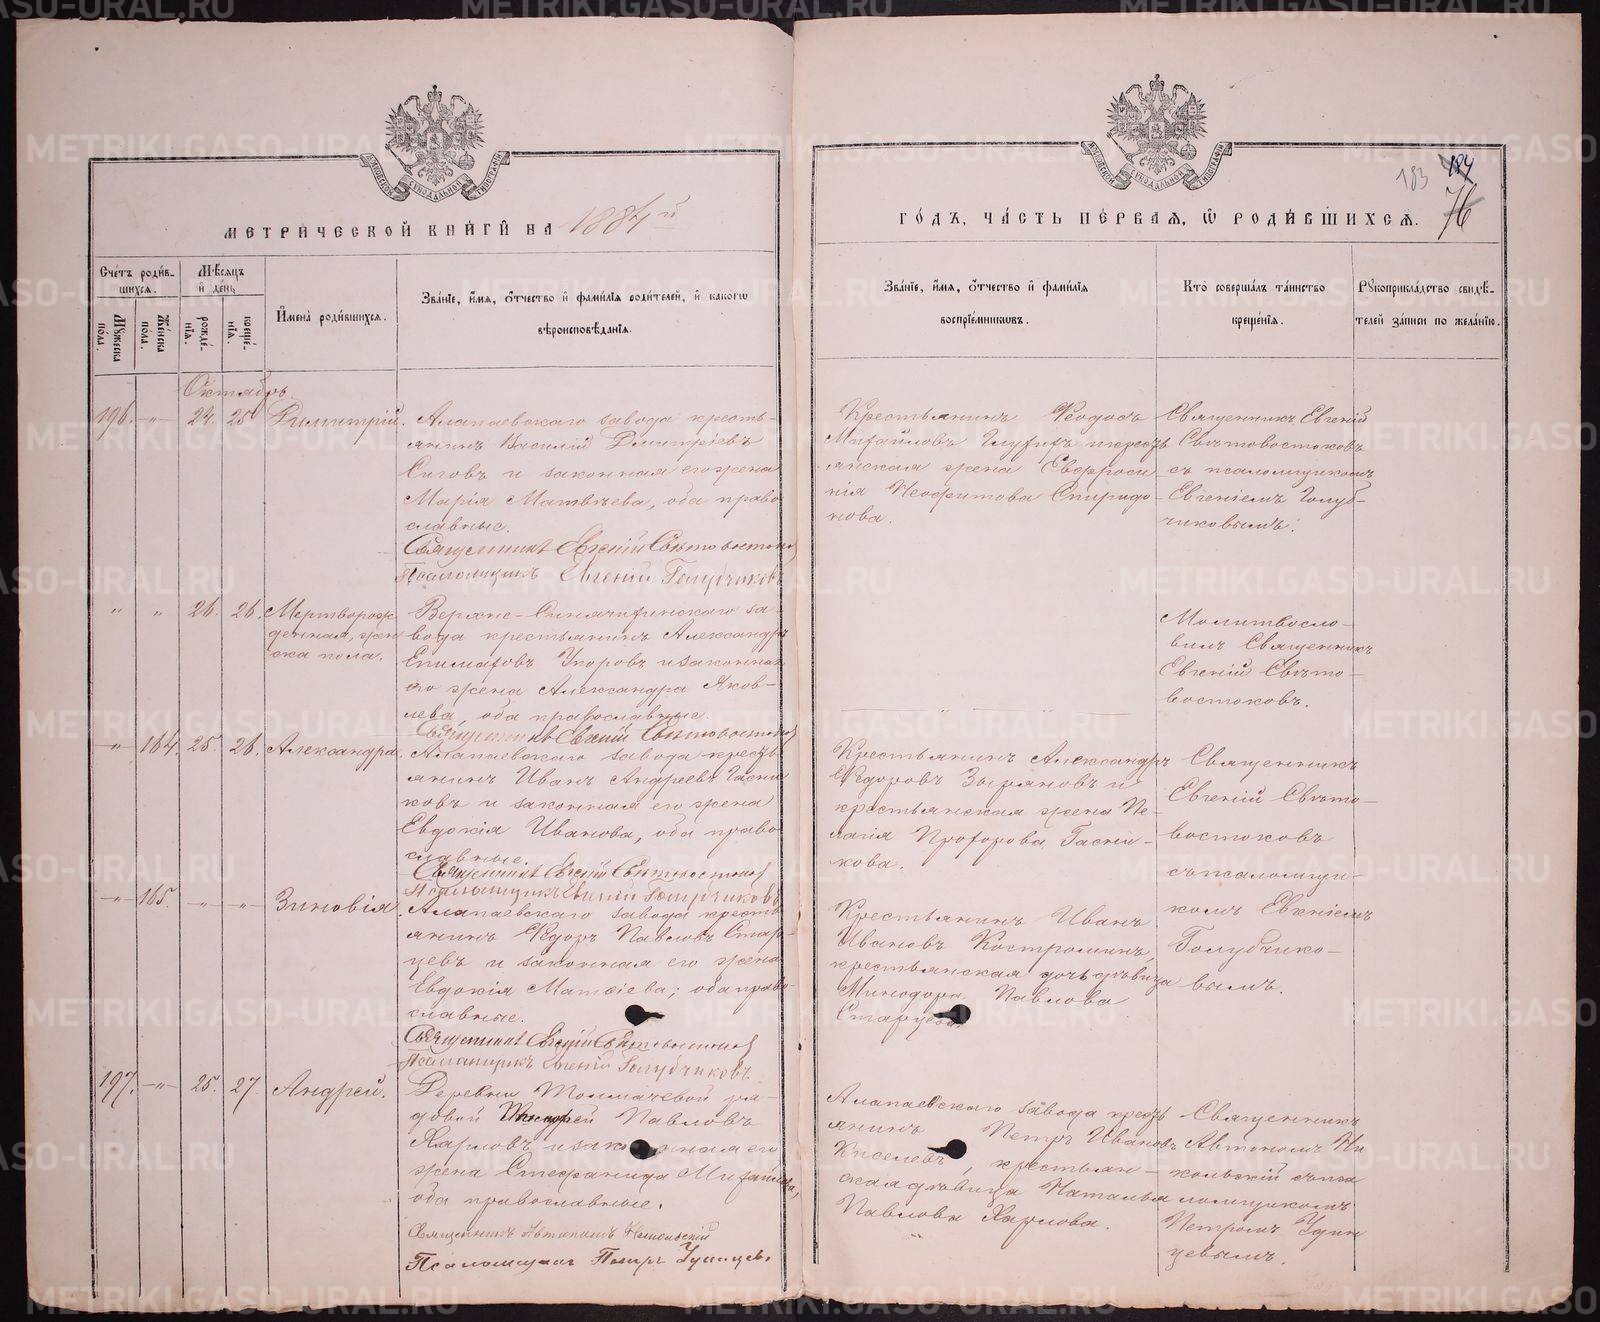 МЕТРИЧЕСКОЙ КНИГИ НА 1884й
ГОДЪ, ЧАСТЬ ПЕРВАЯ, Ѡ РОДИВШИХСЯ.
183
184
76
Счетъ родив-
шихся.
Мужеска пола.
Женска пола.
Мѣсяцъ
и день
рожде-
нїя.
креще-
нїя.
Имена родившихся.
Званїе, имя, отчество и фамилїя родителей, и какогѡ
вѣроисповѣданїя.
Званїе, имя, отчество и фамилїя
воспрїемниковъ.
Кто совершалъ таинство
крещенїя.
Рукоприкладство свидѣ-
телей записи по желанїю.
Октябрь
196. -"- 24. 25 Димитрій.
Алапаевскаго завода кресть-
янинъ Василій Димитріевъ
Сиговъ и законная его жена
Марія Матвѣева, оба право-
славные.
Священникъ Евгеній Свѣтовостоковъ
Псаломщикъ Евгеній Голубчиковъ
Крестьянинъ Ѳеодосъ
Михайловъ Глухихъ и кресть
янская жена Евфроси
нія Неофитова Спиридо-
нова.
Священникъ Евгеній
Свѣтовостоковъ
съ псаломщикомъ
Евгеніемъ Голуб-
чиковымъ.
" " 26. 26. Мертворож
денная, жен
ска пола.
Верхне-Синячихинскаго за-
вода крестьянинъ Александръ
Епимаховъ Упоровъ и законная
его жена Александра Яков-
лева, оба православные.
Священникъ Евгеній Свѣтовостоковъ
Молитвосло-
вилъ Священникъ
Евгеній Свѣто-
востоковъ.
-"- 164. 25. 26. Александра.
Алапаевскаго завода кресть
янинъ Иванъ Андреевъ Гасни
ковъ и законная его жена
Евдокія Иванова, оба право-
славные.
Священникъ Евгеній Свѣтовостоковъ
Псаломщикъ Евгеній Голубчиковъ
Крестьянинъ Александръ
Ѳедоровъ Зыряновъ и
крестьянская жена Пе-
лагія Прохорова Гасни-
кова.
Священникъ
Евгеній Свѣто-
востоковъ
съ псаломщи-
комъ Евгеніемъ
Голубчико-
вымъ.
-"- 165. -"- -"- Зиновія.
Алапаевскаго завода кресть
янинъ Ѳедоръ Павловъ Стар-
цевъ и законная его жена
Евдокія Матѳіева; оба право-
славные.
Священникъ Евгеній Свѣтовостоковъ
Псаломщикъ Евгеній Голубчиковъ.
Крестьянинъ Иванъ
Ивановъ Костроминъ,
крестьянская дочь дѣвица
Минодора Павлова
Старцева
197. -"- 25. 27. Андрей.
Деревни Толмачевой ря-
довой Павловъ
Харловъ и законная его
жена Стефанида Михайлова,
оба православные.
Священникъ Автономъ Никольскій
Псаломщикъ Петръ Удинцевъ.
Алапаевскаго завода кресть
янинъ Петръ Ивановъ
Киселевъ, крестьян-
ская дѣвица Наталья
Павлова Харлова.
Священникъ
Автономъ Ни
кольскій съ пса
ломщикомъ
Петромъ Удин
цевымъ.
METRIKI.GASO-URAL.RU